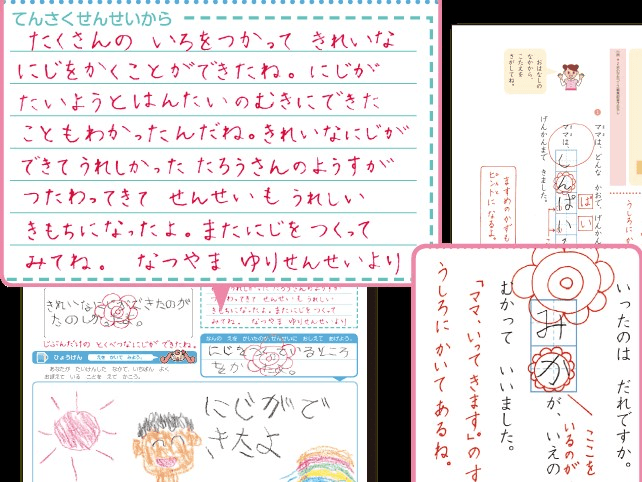 てんさくせんせいから
たくさんの いろをつかって きれいな
にじをかくことができたね。にじが
たいようとはんたいのむきにできた
こともわかったんだね。きれいなにじが
できてうれしかった たろうさんのようすが
つたわってきて せんせいも うれしい
きもちになったよ。またにじをつくって
みてね。 なつやま ゆりせんせいより
おはなしの
なかから、
こたえを
さがしてね。
ママは、どんな かおで、げんかん
ママは、
しんぱい
げんかんまで きました。
ますめのかずも
ヒントに なるよ。
いったのは だれですか。
みか
が、いえの
むかって いいました。
ここを
いるのが
「ママ、いってきます」のす
うしろに かいて あるね。
きれいな できたのが
たのし
たいようとはんたいのむきにできた
うれしかった たろうさんのようすが
つたわってきて せんせいも うれしい
きもちになったよ。またにじをつくって
みてね。 なつやま ゆりせんせいより
じぶんだけの とくべつなにじが できたね。
ひょうげん
えを かいて みよう。
あなたが たいけんした なかで、いちばん よく
おぼえて いる ことを えで かこう。
なんの えを かいたのか、せんせいに おしえて あげよう。
にじを
るところ
をか
にじがで
きたよ